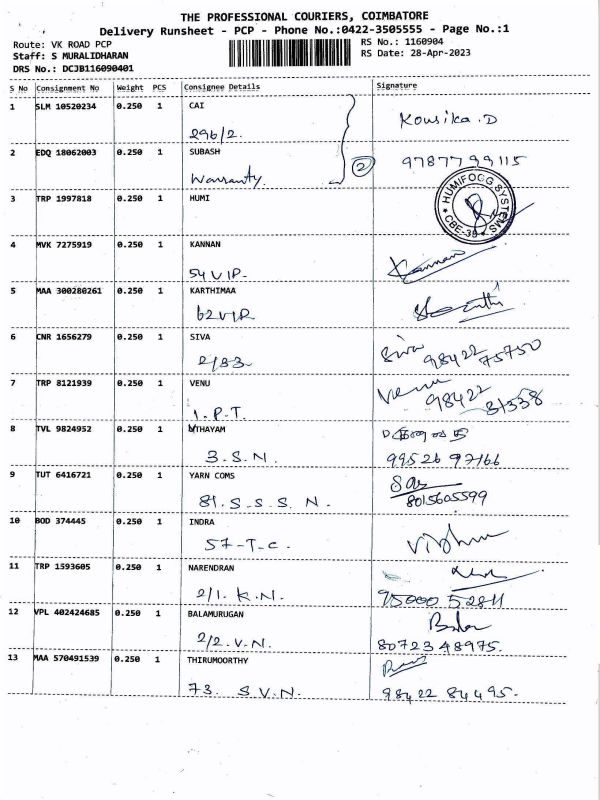 THE PROFESSIONAL COURIERS, COIMBATORE
Delivery Runsheet - PCP - Phone No.:0422-3505555 - Page No.:1
Route: VK ROAD PCP
Staff: S MURALIDHARAN
DRS No.: DCJB116090401
RS No.: 1160904
RS Date: 28-Apr-2023
S No Consignment No Weight PCS Consignee Details Signature
1 SLM 10520234 0.250 1 CAI Kousika.D
296/2.
2 EDQ 18062003 0.250 1 SUBASH 9787799115
Warranty. 2
3 TRP 1997818 0.250 1 HUMI HUMIFOGG SYSTEMS * CBE-38 *
4 MVK 7275919 0.250 1 KANNAN Kannan
54 VIP.
5 MAA 300280261 0.250 1 KARTHIMAA
62 VIP
6 CNR 1656279 0.250 1 SIVA Siva 98422 75750
2/33
7 TRP 8121939 0.250 1 VENU Venu 98422 31338
1. P.T.
8 TVL 9824952 0.250 1 UTHAYAM
3. S.N. 99526 97166
9 TUT 6416721 0.250 1 YARN COMS
81. S.S.S.N. 8015605599
10 BOD 374445 0.250 1 INDRA
57-T.C.
11 TRP 1593605 0.250 1 NARENDRAN
2/1. K.N. 95000 52811
12 VPL 402424685 0.250 1 BALAMURUGAN
2/2. V.N. 8072348975.
13 MAA 570491539 0.250 1 THIRUMOORTHY
73. S.V.N. 98422 84495.